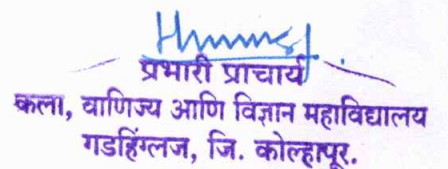 प्रभारी प्राचार्य
कला, वाणिज्य आणि विज्ञान महाविद्यालय
गडहिंग्लज, जि. कोल्हापूर.